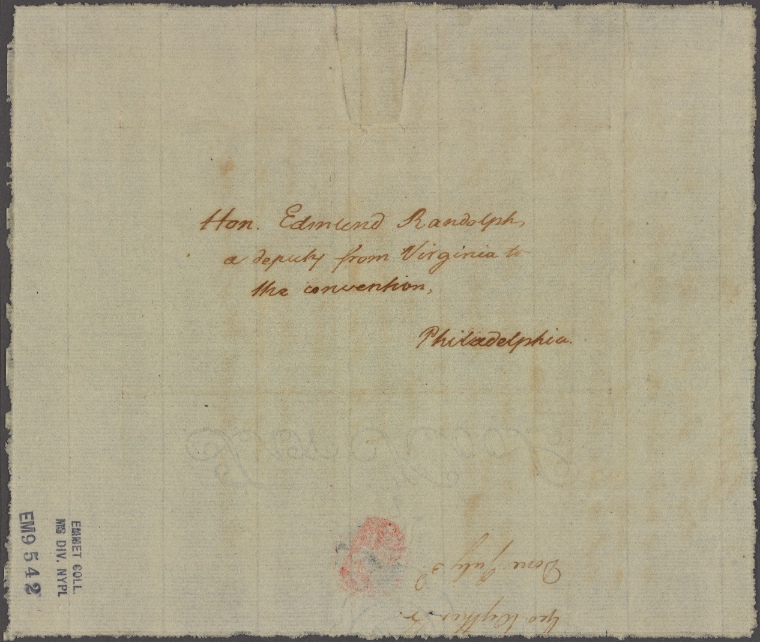 Hon. Edmund Randolph,
a deputy from Virginia to
the convention,
Philadelphia.
Geo Wythe's
July 3
EMMET COLL.
MS DIV. NYPL
EM9542